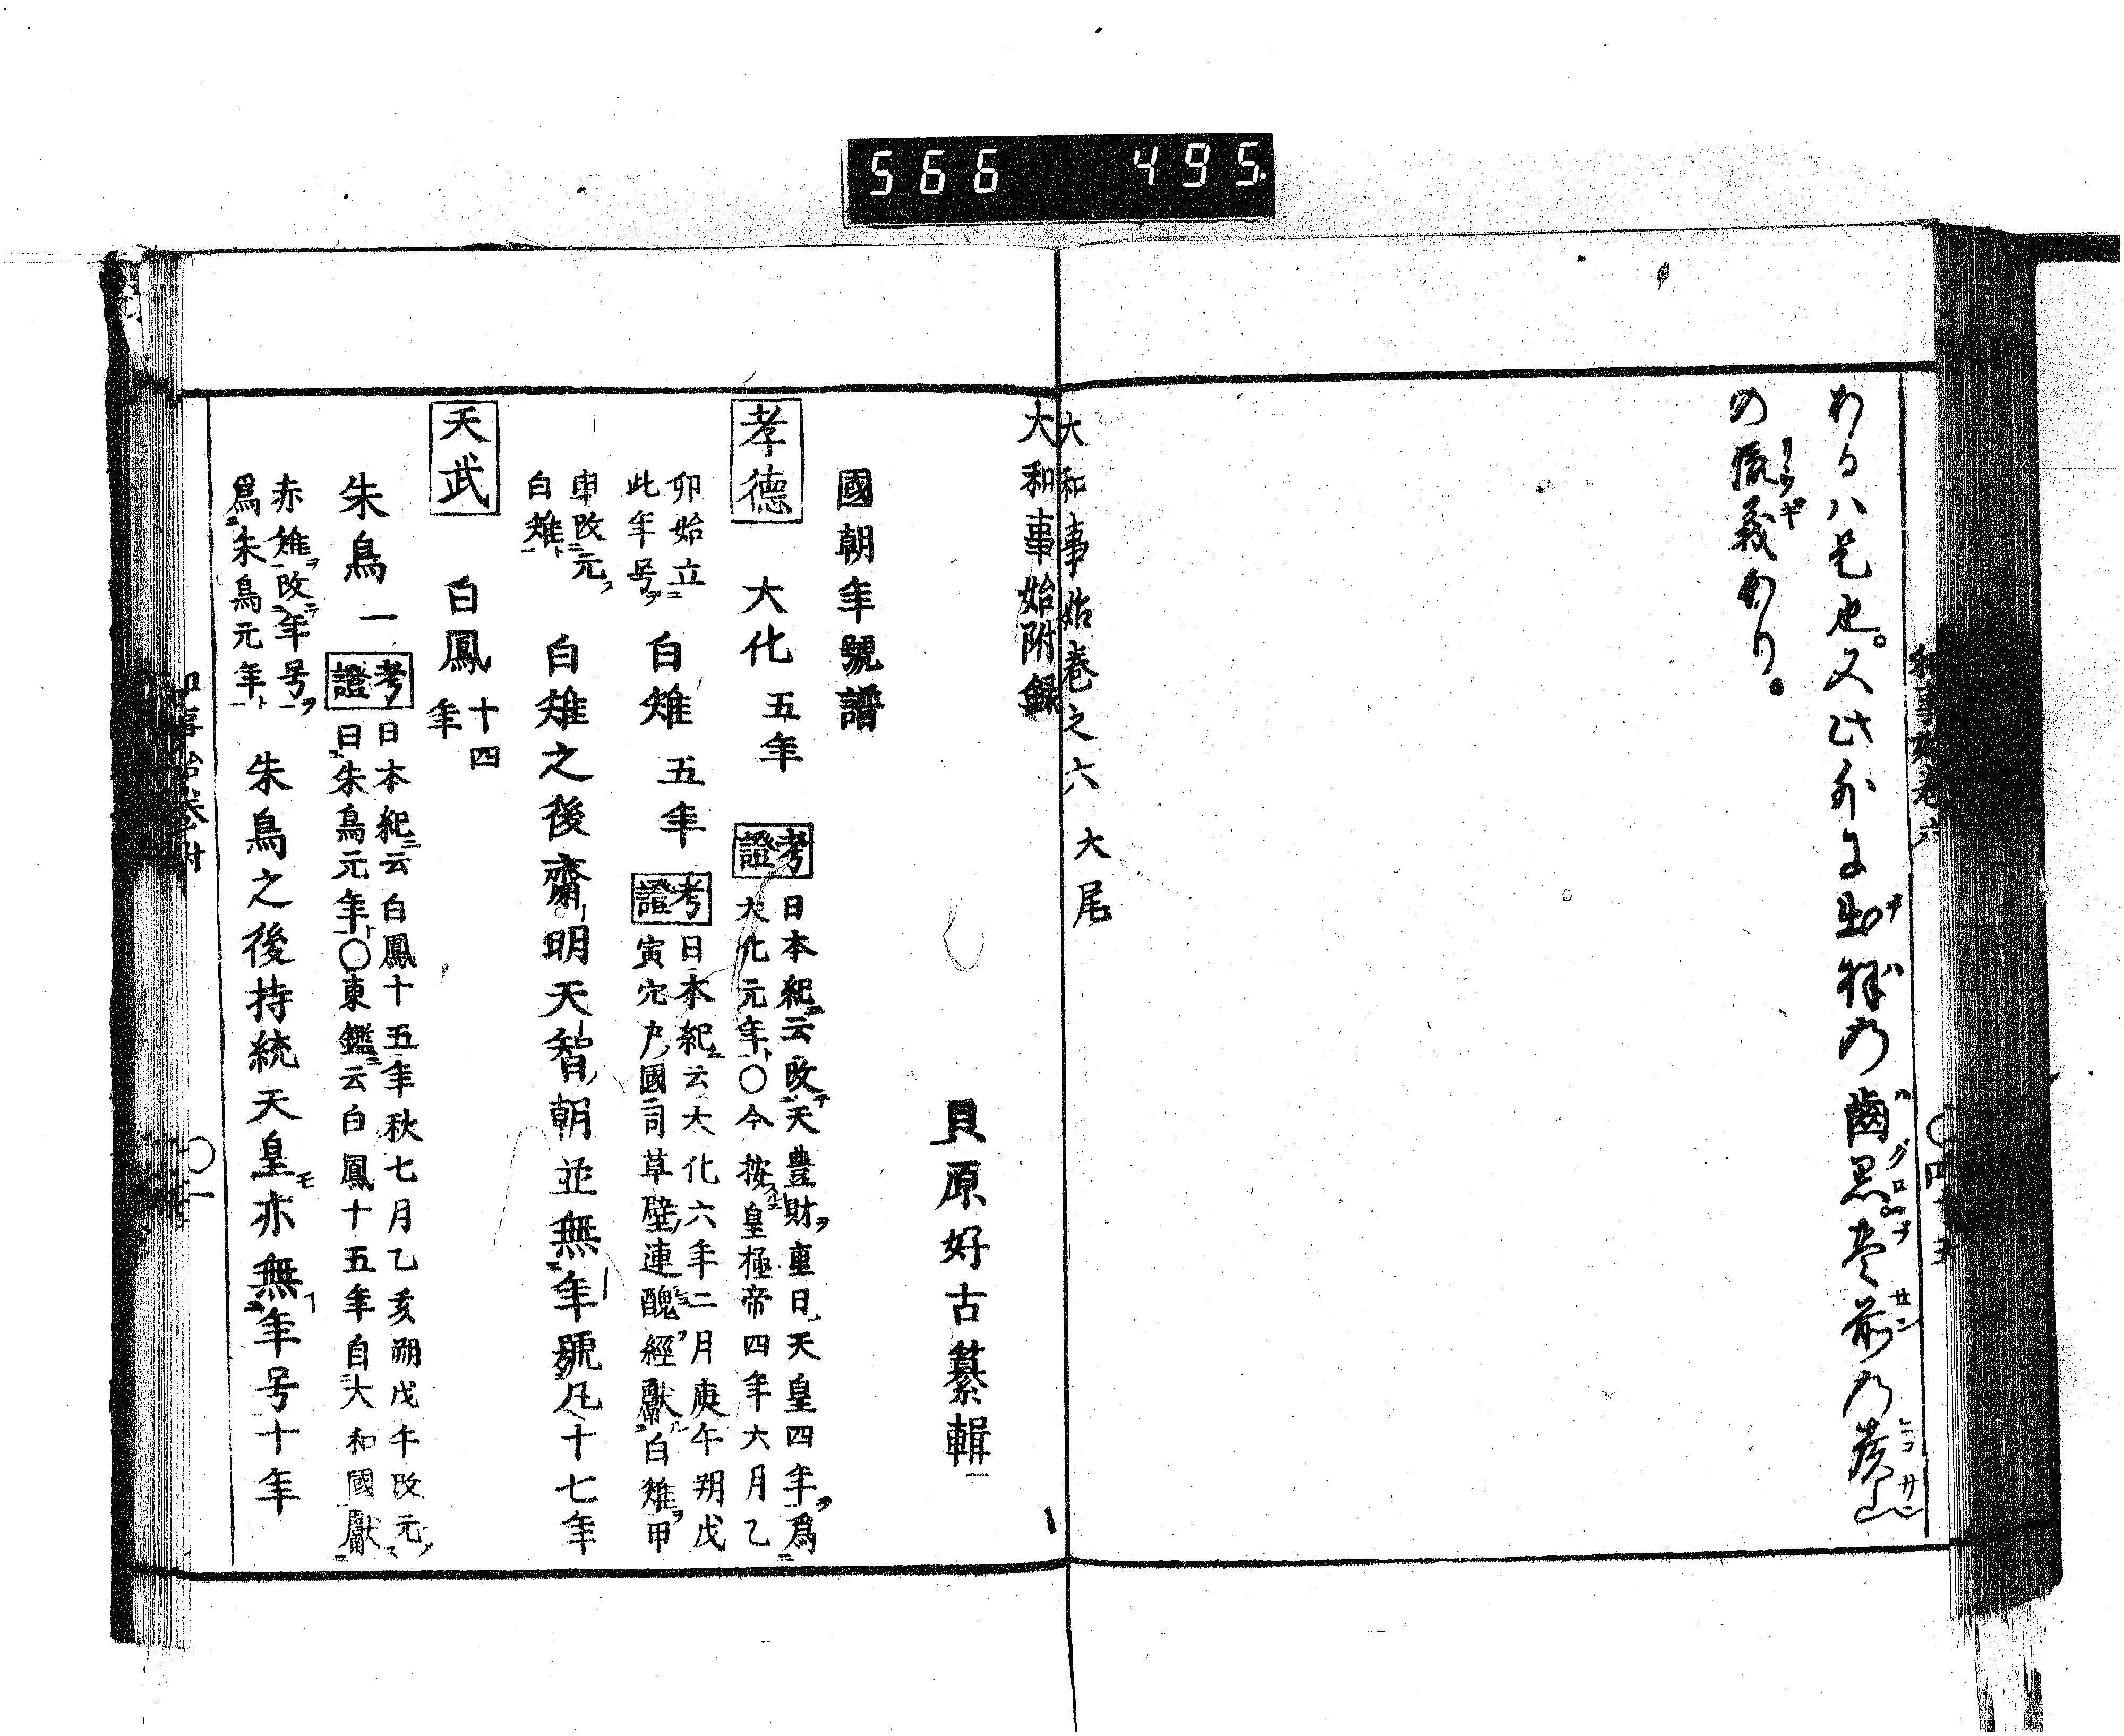 566 495.
和事始卷六
〇四十五
わるハ是也。又此外に出拝の齒黒考前の
の流義あり。
大和事始巻之六 大尾
大和事始附録
貝原好古纂輯
國朝年號譜
孝德 大化 五年 考證 日本紀云改天豊財重日天皇四年爲
大化元年〇今按皇極帝四年六月乙
卯始立
此年号 白雉 五年 考證 日本紀云大化六年二月庚午朔戊
寅穴戸國司草壁連醜經獻白雉甲
申改元
白雉 白雉之後齋明天智朝並無年號凡十七年
天武 白鳳 十四
年
朱鳥 一 考證 日本紀云白鳳十五年秋七月乙亥朔戊午改元
曰朱鳥元年〇東鑑云白鳳十五年自大和國獻
赤雉改年号
爲朱鳥元年 朱鳥之後持統天皇亦無年号十年
和事始卷附
〇一